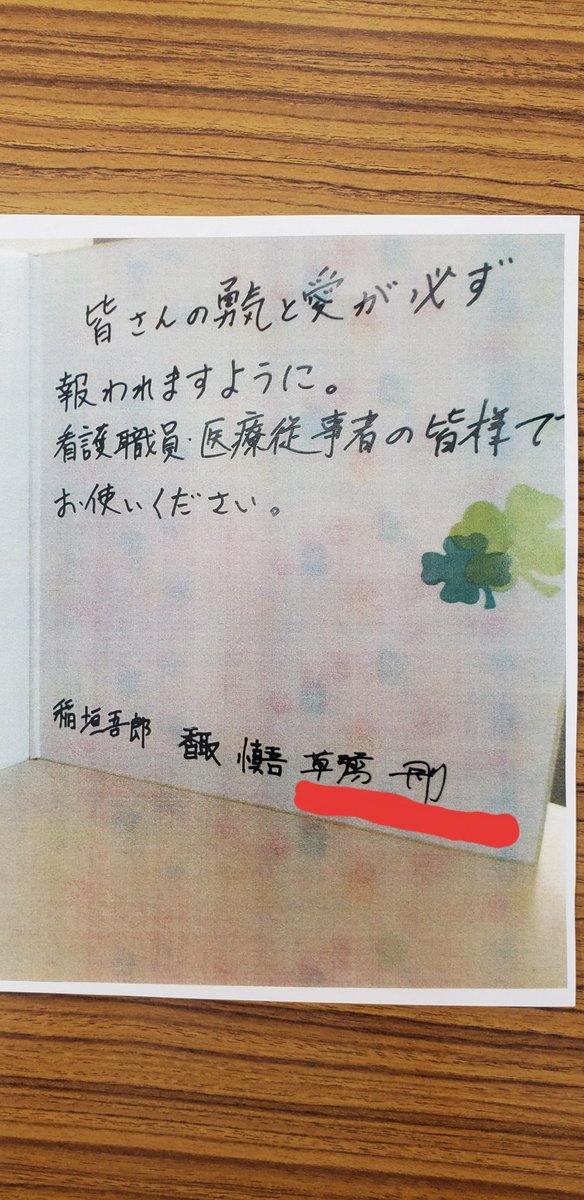 皆さんの勇気と愛が必ず
報われますように。
看護職員・医療従事者の皆様で
お使いください。
稲垣吾郎 香取 慎吾 草彅 剛